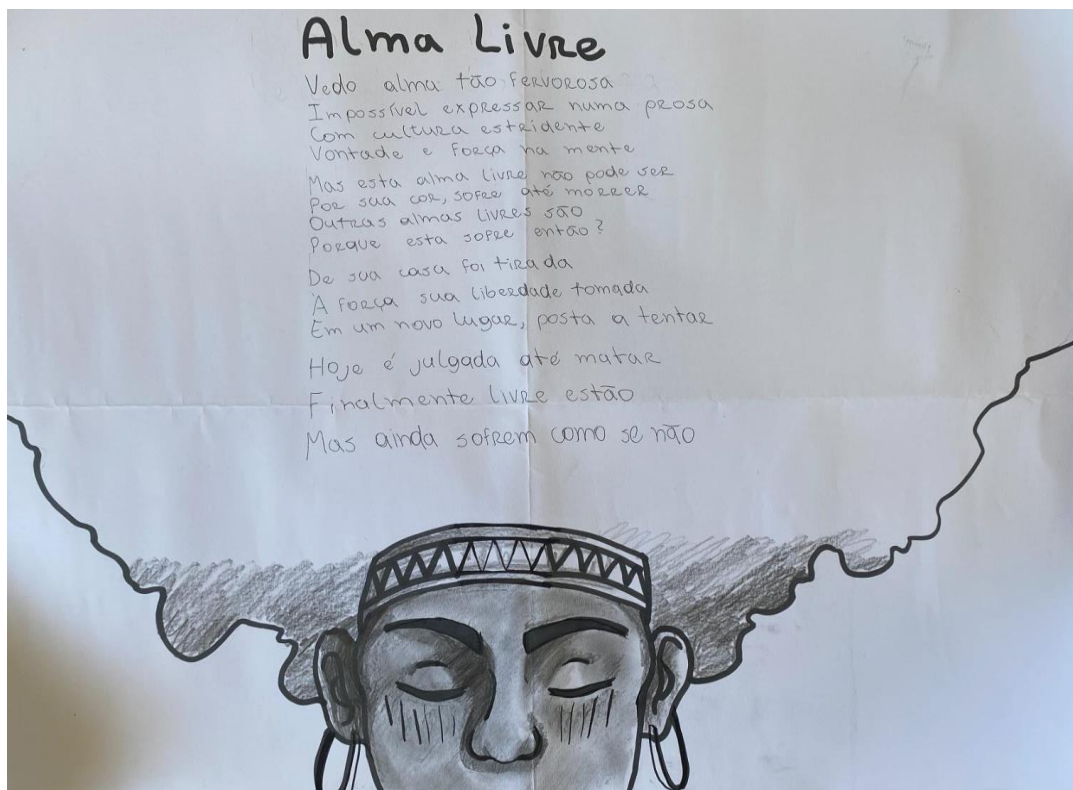 Alma Livre
Vedo alma tão fervorosa
Impossível expressar numa prosa
Com cultura estridente
Vontade e força na mente
Mas esta alma livre não pode ser
Por sua cor, sofre até morrer
Outras almas livres são
Porque esta sofre então?
De sua casa foi tirada
À força sua liberdade tomada
Em um novo lugar, posta a tentar
Hoje é julgada até matar
Finalmente livre estão
Mas ainda sofrem como se não